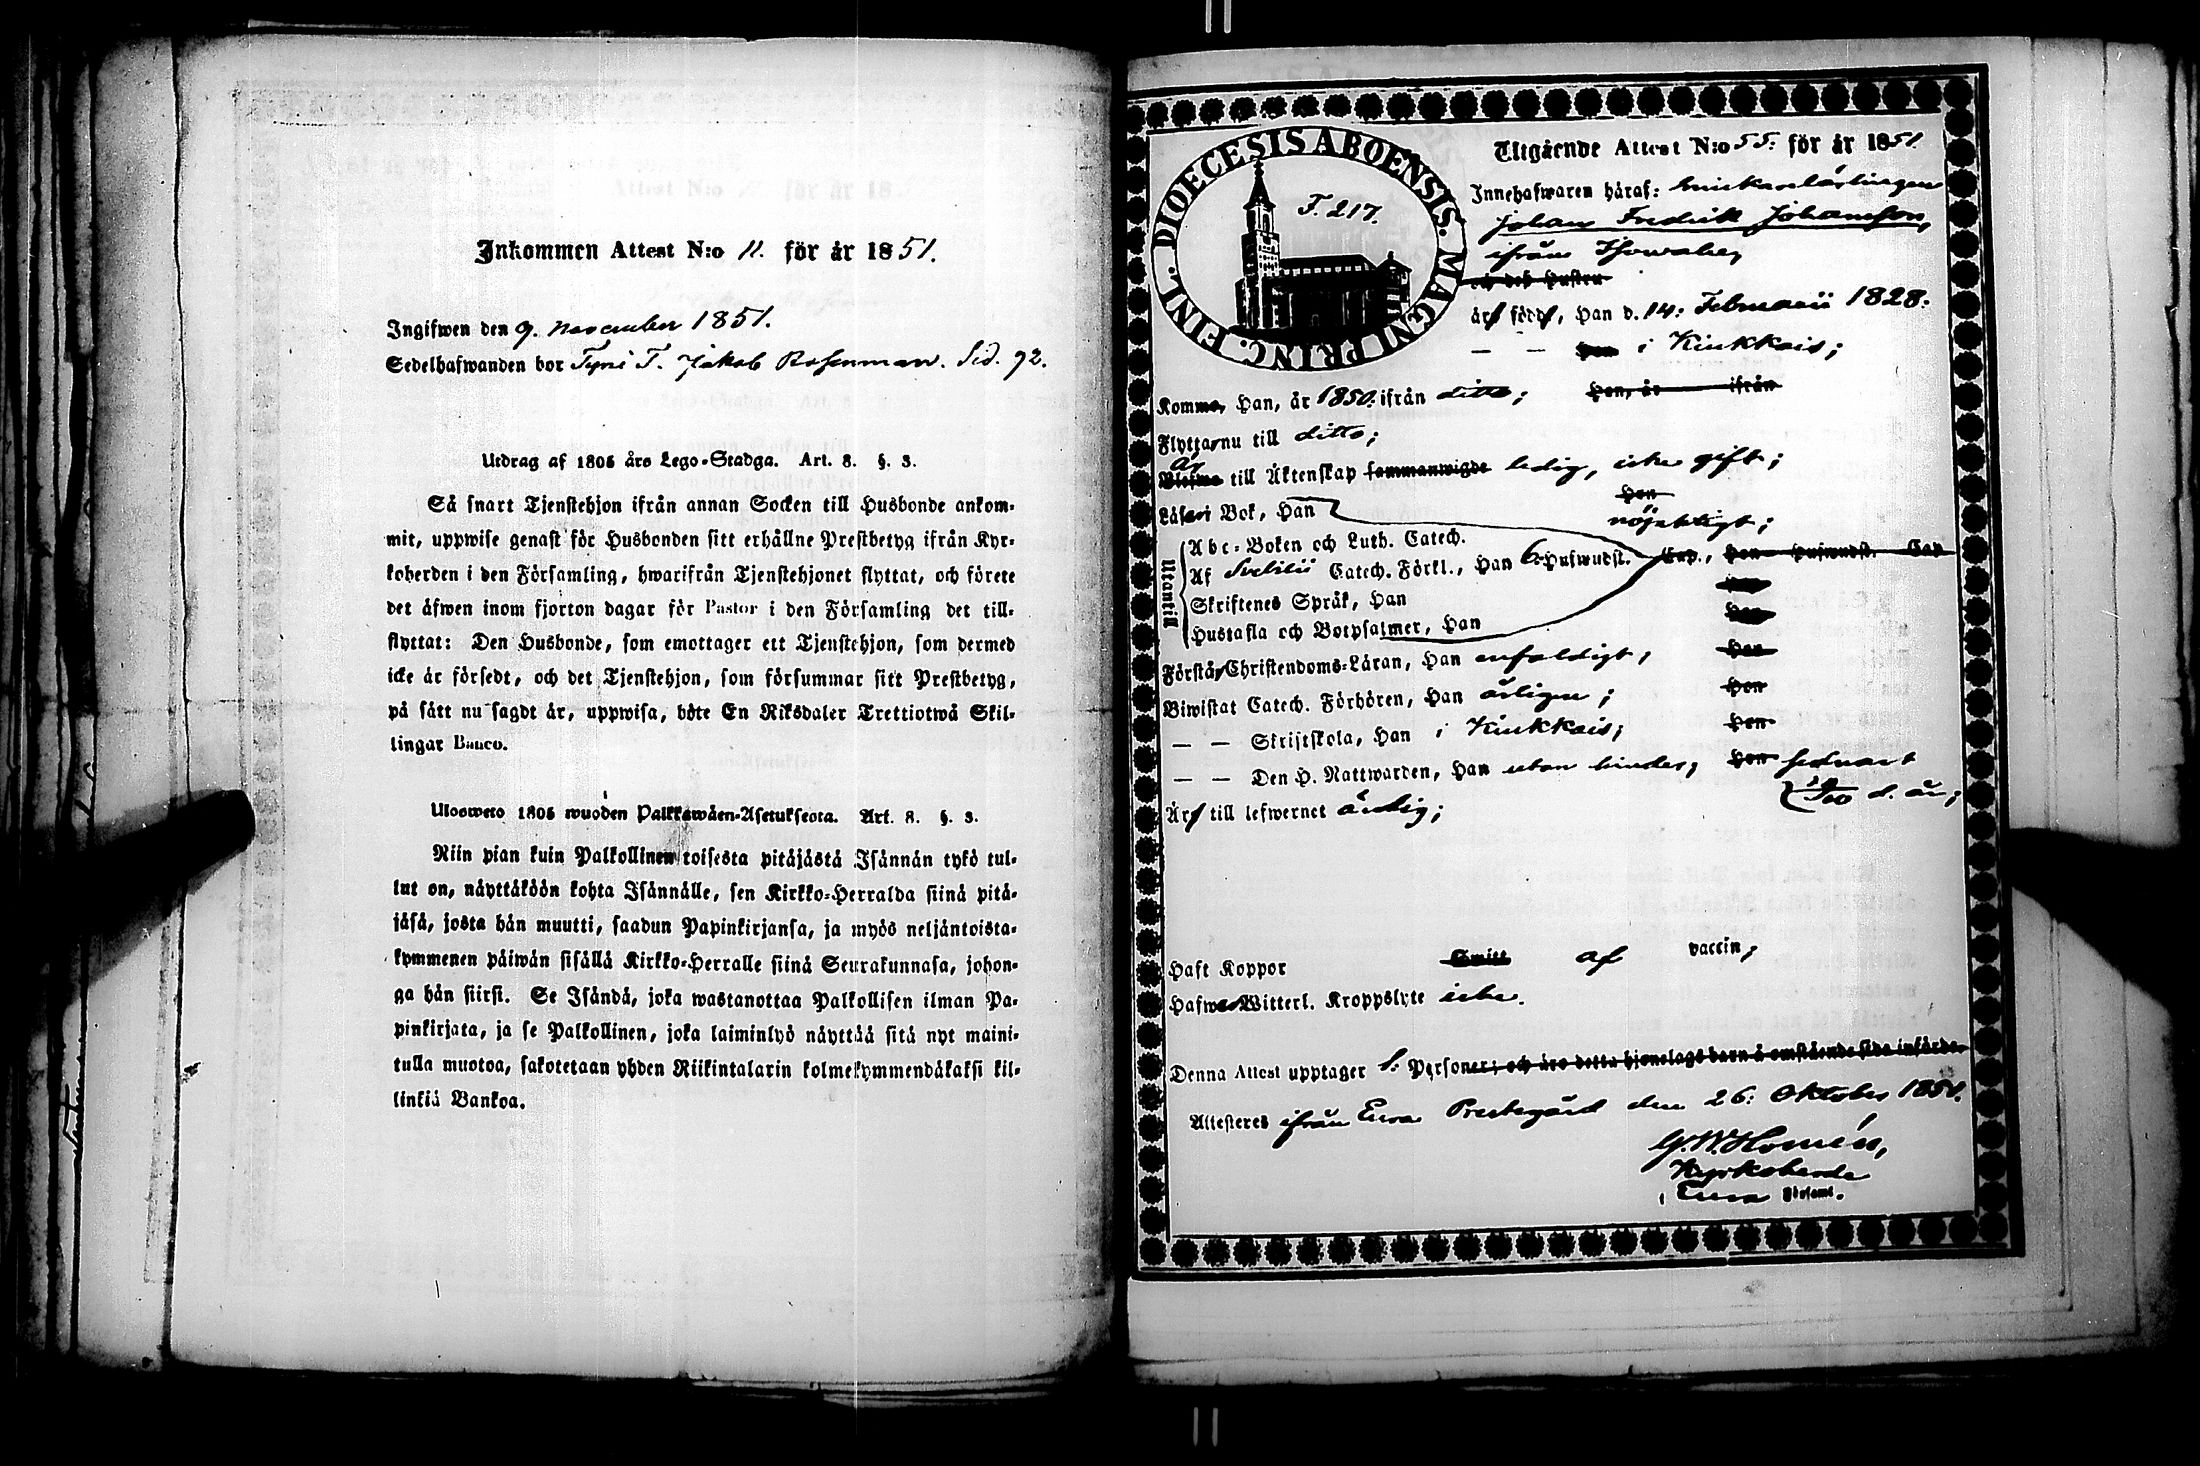 Inkommen Attest N:o 11. för år 1851.
Ingifwen den 9. november 1851.
Sedelhafwanden bor Tyni T. Jakob Rosenman. Sid. 92.
Utdrag af 1805 års Lego-Stadga. Art. 8. §. 3.
Så snart Tjenstehjon ifrån annan Socken till Husbonde ankom-
mit, uppwise genast för Husbonden sitt erhållne Prestbetyg ifrån Kyr-
koherden i den Församling, hwarifrån Tjenstehjonet flyttat, och förete
det äfwen inom fjorton dagar för Pastor i den Församling det till-
flyttat: Den Husbonde, som emottager ett Tjenstehjon, som dermed
icke är försedt, och det Tjenstehjon, som försummar sitt Prestbetyg,
på sätt nu sagdt är, uppwisa, böte En Riksdaler Trettiotwå Skil-
lingar Banco.
Ulosweto 1805 wuoden Palkkawäen-Asetuksesta. Art. 8. §. 3.
Niin pian kuin Palkollinen toisesta pitäjästä Isännän tykö tul-
lut on, näyttäköön kohta Isännälle, sen Kirkko-Herralda siinä pitä-
jäsä, josta hän muutti, saadun Papinkirjansa, ja myös neljäntoista-
kymmenen päiwän sisällä Kirkko-Herralle siinä Seurakunnasa, johon-
ga hän siirsi. Se Isändä, joka wastanottaa Palkollisen ilman Pa-
pinkirjata, ja se Palkollinen, joka laiminlyö näyttää sitä nyt maini-
tulla muotoa, sakotetaan yhden Riikintalarin kolmekymmendäkaksi kil-
linkiä Bankoa.
DIOECESIS ABOENSIS. MAGNI PRINC. FINL.
F. 217.
Utgående Attest N:o 55. för år 1851.
Innehafwaren häraf:
Johan Fredrik Johansson,
ifrån
och deß Hustru
är född, Han d. 14. Februarii 1828.
— — Hon i Kiukkais;
Komme, Han, år 1850. ifrån ditto; Hon, år ifrån
Flytta nu till ditto;
är
Blefwo till Äktenskap sammanwigde ledig, icke gift;
Hon
Läser i Bok, Han nöjaktigt;
Utantill
Abc-Boken och Luth. Catech.
Af Svebilii Catech. Förkl., Han 6. Hufwudst. Cap., Hon Hufwudst. Cap
Skriftenes Språk, Han Hon
Hustafla och Botpsalmer, Han Hon
Förstår Christendoms-Läran, Han enfaldigt, Hon
Biwistat Catech. Förhören, Han årligen; Hon
— — Skriftskola, Han i Kiukkais; Hon
— — Den H. Nattwarden, Han utan hinder, Hon sednast
d. år;
Är till lefwernet ärlig;
Haft Koppor Smitt af vaccin;
Hafwa Witterl. Kroppslyte icke.
Denna Attest upptager 1. Personer; och äro detta hjonelags barn å omstående sida införda.
Attesteres ifrån Eura Prestegård den 26. Oktober 1851.
G.W. Homén,
Kyrkoherde
i Eura Församl.